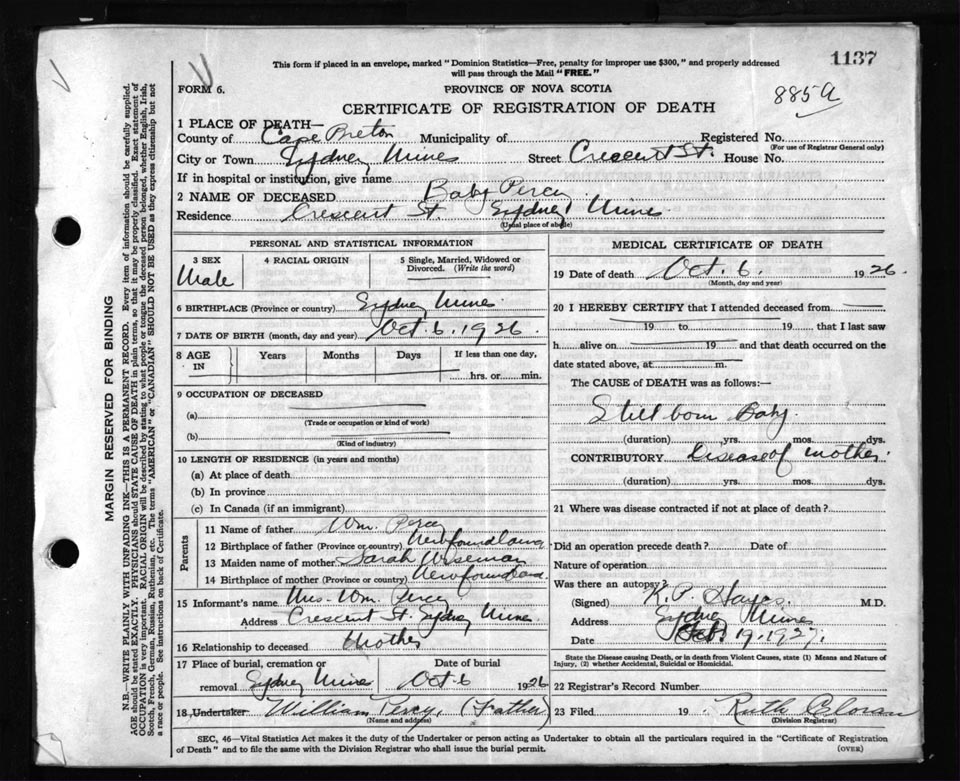 1137
This form if placed in an envelope, marked "Dominion Statistics—Free, penalty for improper use $300," and properly addressed
will pass through the Mail "FREE."
FORM 6.
PROVINCE OF NOVA SCOTIA
885a
CERTIFICATE OF REGISTRATION OF DEATH
1 PLACE OF DEATH—
County of Cape Breton Municipality of Registered No.
(For use of Registrar General only)
City or Town Sydney Mines Street Crescent St. House No.
If in hospital or institution, give name
2 NAME OF DECEASED Baby Percy
Residence Crescent St. Sydney Mines
(Usual place of abode)
PERSONAL AND STATISTICAL INFORMATION
3 SEX 4 RACIAL ORIGIN 5 Single, Married, Widowed or
Divorced. (Write the word)
Male
6 BIRTHPLACE (Province or country) Sydney Mines
7 DATE OF BIRTH (month, day and year) Oct. 6. 1926.
8 AGE IN Years Months Days If less than one day,
hrs. or min.
9 OCCUPATION OF DECEASED
(a)
(Trade or occupation or kind of work)
(b)
(Kind of industry)
10 LENGTH OF RESIDENCE (in years and months)
(a) At place of death
(b) In province
(c) In Canada (if an immigrant)
Parents
11 Name of father Wm. Percy
12 Birthplace of father (Province or country) Newfoundland
13 Maiden name of mother Sarah Wiseman
14 Birthplace of mother (Province or country) Newfoundland
15 Informant's name Mrs. Wm. Percy
Address Crescent St. Sydney Mines
16 Relationship to deceased Mother
17 Place of burial, cremation or Date of burial
removal Sydney Mines Oct 6 1926
18 Undertaker William Percy, (Father)
(Name and address)
MEDICAL CERTIFICATE OF DEATH
19 Date of death Oct. 6. 1926.
(Month, day and year)
20 I HEREBY CERTIFY that I attended deceased from
19 to 19 that I last saw
h alive on 19 and that death occurred on the
date stated above, at m.
The CAUSE of DEATH was as follows:—
Still born Baby.
(duration) yrs. mos. dys.
CONTRIBUTORY Disease of mother.
(duration) yrs. mos. dys.
21 Where was disease contracted if not at place of death?
Did an operation precede death? Date of
Nature of operation
Was there an autopsy?
(Signed) K. P. Hayes. M.D.
Address Sydney Mines
Date 19. 1927.
State the Disease causing Death, or in death from Violent Causes, state (1) Means and Nature of
Injury, (2) whether Accidental, Suicidal or Homicidal.
22 Registrar's Record Number
23 Filed 19 Ruth
(Division Registrar)
SEC, 46—Vital Statistics Act makes it the duty of the Undertaker or person acting as Undertaker to obtain all the particulars required in the "Certificate of Registration
of Death" and to file the same with the Division Registrar who shall issue the burial permit.
(OVER)
MARGIN RESERVED FOR BINDING
N.B.—WRITE PLAINLY WITH UNFADING INK—THIS IS A PERMANENT RECORD. Every item of information should be carefully supplied.
AGE should be stated EXACTLY. PHYSICIANS should STATE CAUSE OF DEATH in plain terms, so that it may be properly classified. Exact statement of
OCCUPATION is very important. RACIAL ORIGIN will be described by stating to what people or tongue the deceased person belonged, whether English, Irish,
Scotch, French, German, Russian, Ruthenian, etc. The terms "AMERICAN" or "CANADIAN" SHOULD NOT BE USED as they express citizenship but not
a race or people. See instructions on back of Certificate.